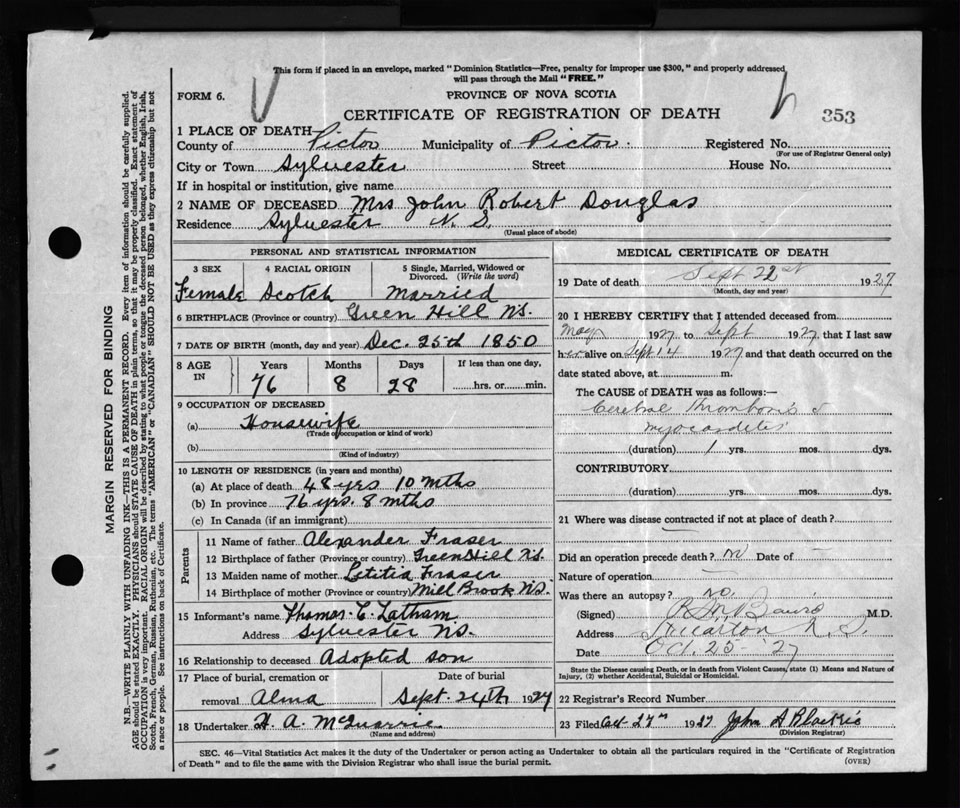 This form if placed in an envelope, marked "Dominion Statistics—Free, penalty for improper use $300," and properly addressed
will pass through the Mail "FREE."
FORM 6.
PROVINCE OF NOVA SCOTIA
CERTIFICATE OF REGISTRATION OF DEATH
353
1 PLACE OF DEATH—
County of Pictou Municipality of Pictou. Registered No.
(For use of Registrar General only)
City or Town Sylvester Street House No.
If in hospital or institution, give name
2 NAME OF DECEASED Mrs John Robert Douglas
Residence Sylvester N. S.
(Usual place of abode)
PERSONAL AND STATISTICAL INFORMATION
3 SEX 4 RACIAL ORIGIN 5 Single, Married, Widowed or Divorced. (Write the word)
Female Scotch Married
6 BIRTHPLACE (Province or country) Green Hill N.S.
7 DATE OF BIRTH (month, day and year) Dec. 25th 1850
8 AGE IN Years Months Days If less than one day,
76 8 28 hrs. or min.
9 OCCUPATION OF DECEASED
(a) Housewife
(Trade occupation or kind of work)
(b)
(Kind of industry)
10 LENGTH OF RESIDENCE (in years and months)
(a) At place of death 48 yrs 10 mths
(b) In province 76 yrs. 8 mths
(c) In Canada (if an immigrant)
Parents
11 Name of father Alexander Fraser
12 Birthplace of father (Province or country) Green Hill N.S.
13 Maiden name of mother Letitia Fraser
14 Birthplace of mother (Province or country) Mill Brook N.S.
15 Informant's name Thomas. C. Latham
Address Sylvester N.S.
16 Relationship to deceased Adopted son
17 Place of burial, cremation or removal Alma
Date of burial
Sept. 24th 1927
18 Undertaker H. A. McQuarrie
(Name and address)
MEDICAL CERTIFICATE OF DEATH
19 Date of death Sept 22st 1927
(Month, day and year)
20 I HEREBY CERTIFY that I attended deceased from
May 1927 to Sept 1927 that I last saw
her alive on Sept 14 1927 and that death occurred on the
date stated above, at m.
The CAUSE of DEATH was as follows:—
Cerebral thrombosis &
myocarditis
(duration) 1 yrs. mos. dys.
CONTRIBUTORY
(duration) yrs. mos. dys.
21 Where was disease contracted if not at place of death?
Did an operation precede death? no Date of —
Nature of operation —
Was there an autopsy? no.
(Signed) M.D.
Address N.S.
Date Oct. 25 - 27
State the Disease causing Death, or in death from Violent Causes, state (1) Means and Nature of
Injury, (2) whether Accidental, Suicidal or Homicidal.
22 Registrar's Record Number
23 Filed Oct 27th 1927 John A Blackie
(Division Registrar)
SEC. 46—Vital Statistics Act makes it the duty of the Undertaker or person acting as Undertaker to obtain all the particulars required in the "Certificate of Registration
of Death" and to file the same with the Division Registrar who shall issue the burial permit.
(OVER)
MARGIN RESERVED FOR BINDING
N.B.—WRITE PLAINLY WITH UNFADING INK—THIS IS A PERMANENT RECORD. Every item of information should be carefully supplied.
AGE should be stated EXACTLY. PHYSICIANS should STATE CAUSE OF DEATH in plain terms, so that it may be properly classified. Exact statement of
OCCUPATION is very important. RACIAL ORIGIN will be described by stating to what people or tongue the deceased person belonged, whether English, Irish,
Scotch, French, German, Russian, Ruthenian, etc. The terms "AMERICAN" or "CANADIAN" SHOULD NOT BE USED as they express citizenship but not
a race or people. See instructions on back of Certificate.